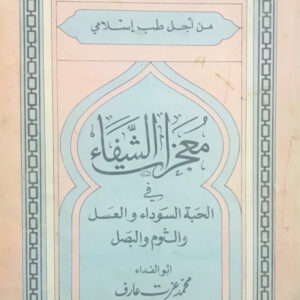 من أجل طب إسلامي
معجزات الشفاء
في
الحبة السوداء والعسل
والثوم والبصل
أبو الفداء
محمد عزت عارف